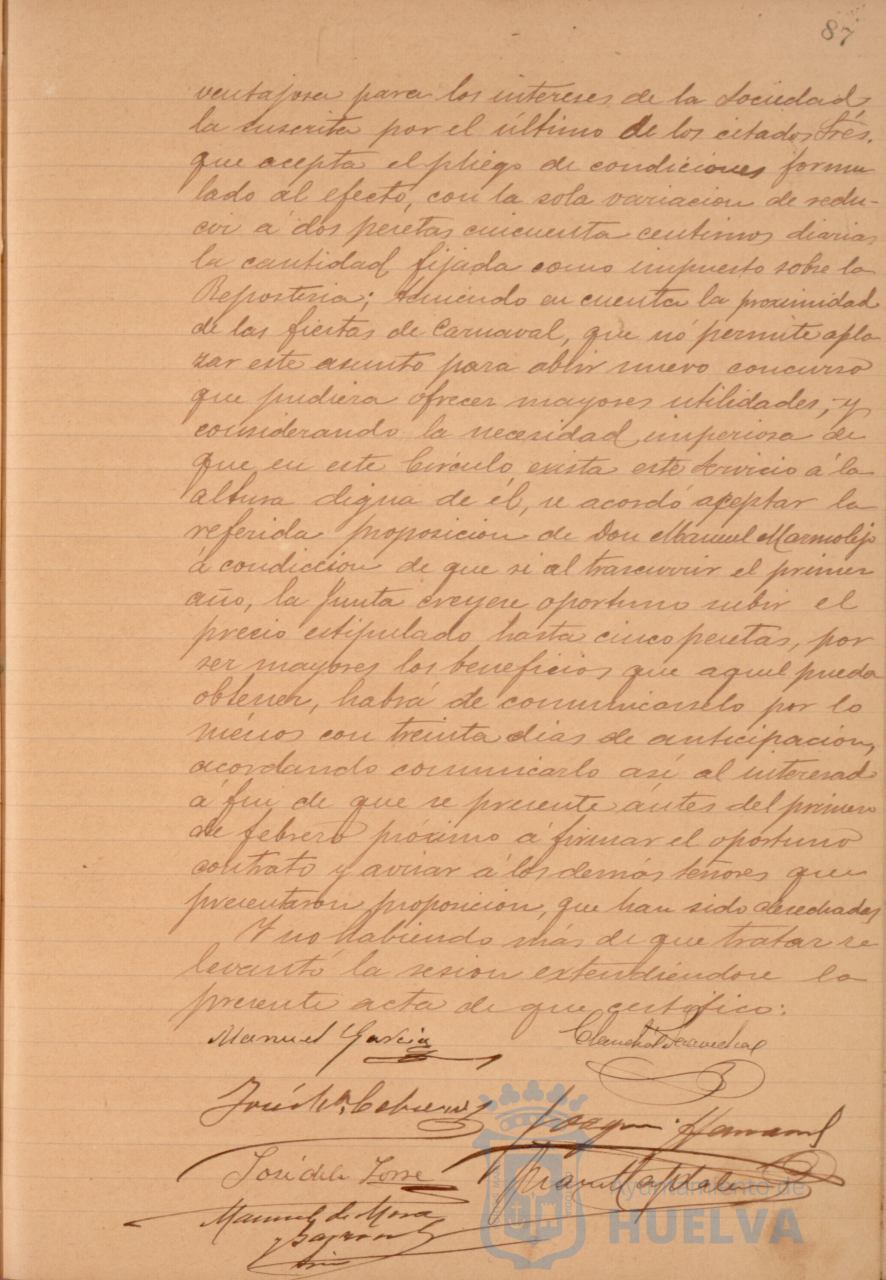 87
ventajosa para los intereses de la Sociedad
la suscrita por el último de los citados Srés.
que acepta el pliego de condiciones formu
lado al efecto, con la sola variacion de redu-
cir á dos pesetas cincuenta centimos diarias
la cantidad fijada como impuesto sobre la
Reposteria; teniendo en cuenta la proximidad
de las fiestas de Carnaval, que nó permite apla
zar este asunto para abrir nuevo concurso
que pudiera ofrecer mayores utilidades,- y
considerando la necesidad imperiosa de
que en este Círculo exista este servicio á la
altura digna de él, se acordó aceptar la
referida proposicion de Don Manuel Marmolejo
á condiccion de que si al trascurrir el primer
año, la Junta creyere oportuno subir el
precio estipulado hasta cinco pesetas, por
ser mayores los beneficios que aquel pueda
obtener, habrá de comunicarselo por lo
ménos con treinta dias de anticipación,
acordando comunicarlo así al interesado
á fin de que se presente ántes del primero
de febrero próximo á firmar el oportuno
contrato y avisar á los demás señores que
presentaron proposicion, que han sido desechadas
Y no habiendo más de que tratar se
levantó la sesion extendiéndose la
presente acta de que certifico:
Manuel Garcia
José de la Torre
Manuel de Mora
Ayuntamiento de
HUELVA